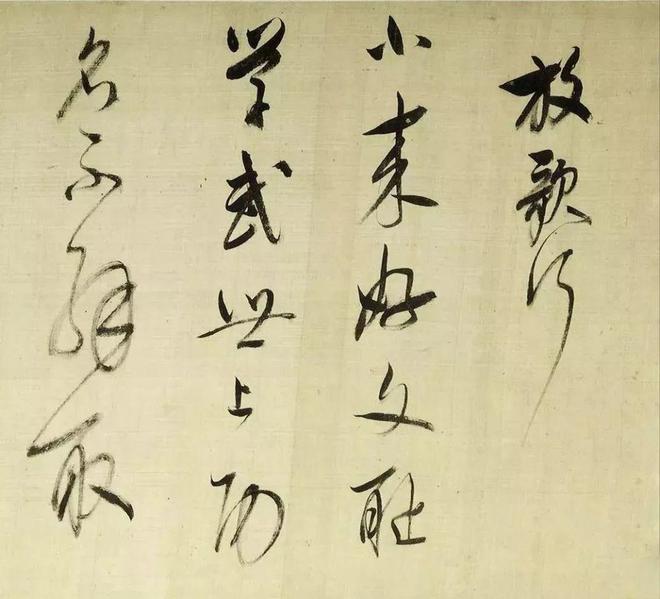 放歌行
小来好文耻
学武世上功
名不解取